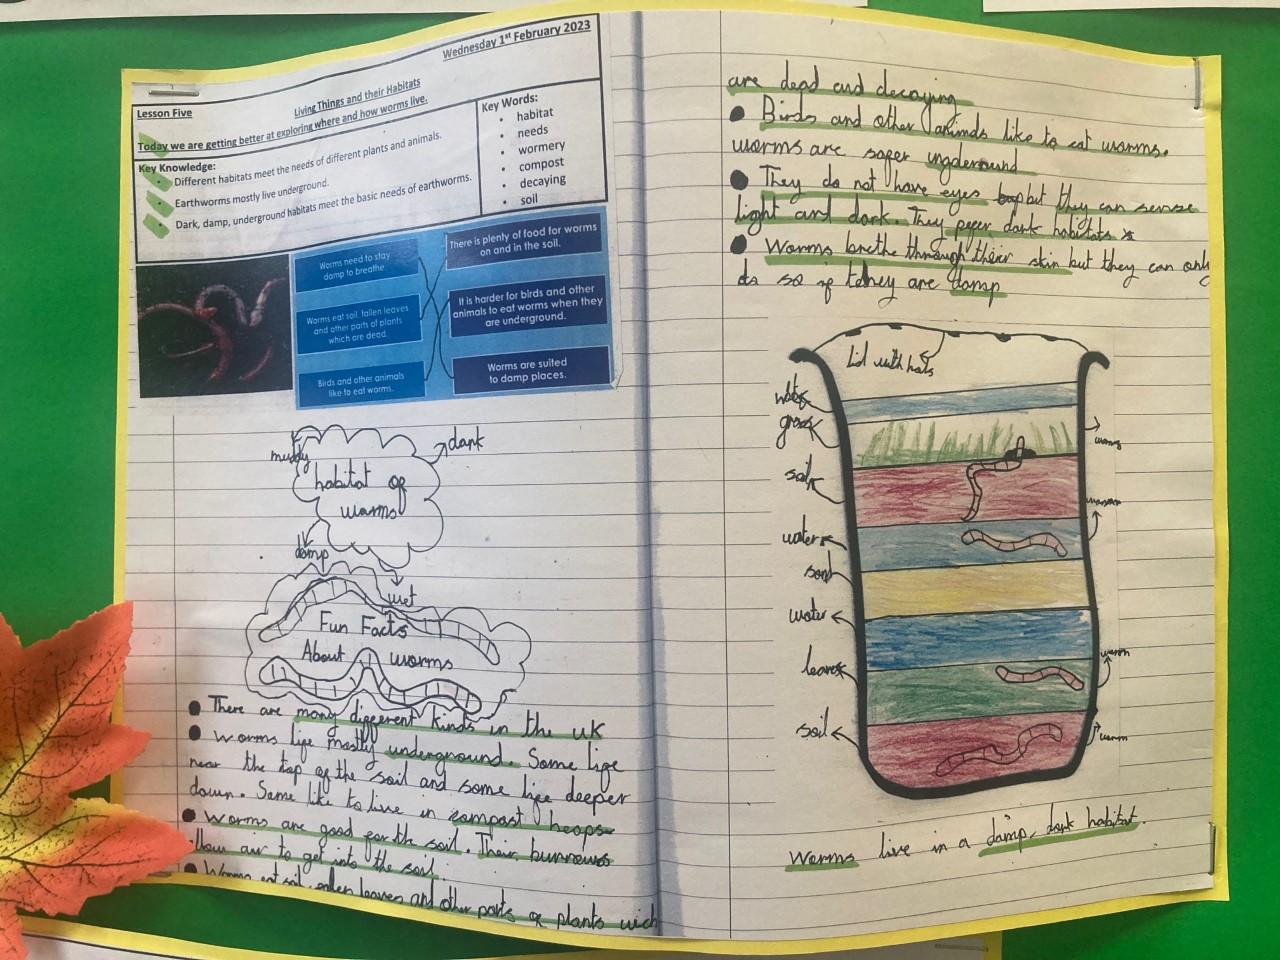 Wednesday 1st February 2023
Lesson Five
Living Things and their Habitats
Today we are getting better at exploring where and how worms live.
Key Knowledge:
• Different habitats meet the needs of different plants and animals.
• Earthworms mostly live underground.
• Dark, damp, underground habitats meet the basic needs of earthworms.
Key Words:
• habitat
• needs
• wormery
• compost
• decaying
• soil
Worms need to stay
damp to breathe.
Worms eat soil, fallen leaves
and other parts of plants
which are dead.
Birds and other animals
like to eat worms.
There is plenty of food for worms
on and in the soil.
It is harder for birds and other
animals to eat worms when they
are underground.
Worms are suited
to damp places.
muddy
dark
habitat of
worms
damp
wet
Fun Facts
About worms
• There are many different kinds in the uk
• worms life mostly underground. Some life
near the top of the soil and some life deeper
down. Some like to live in compost heops
• worms are good for the soil. Their burrows
allow air to get into the soil.
• Worms eat soil, leaves and other parts of plants wich
are dead and decaying
• Birds and other animals like to eat worms.
worms are safer
• They do not have eyes but they can sense
light and dark. They dark habitats
• Worms brethe through their skin but they can only
do so if they are damp
lid with hols
water
grass
soil
water
sand
water
leaves
soil
worms
worm
worm
worm
Worms live in a damp, dark habitat